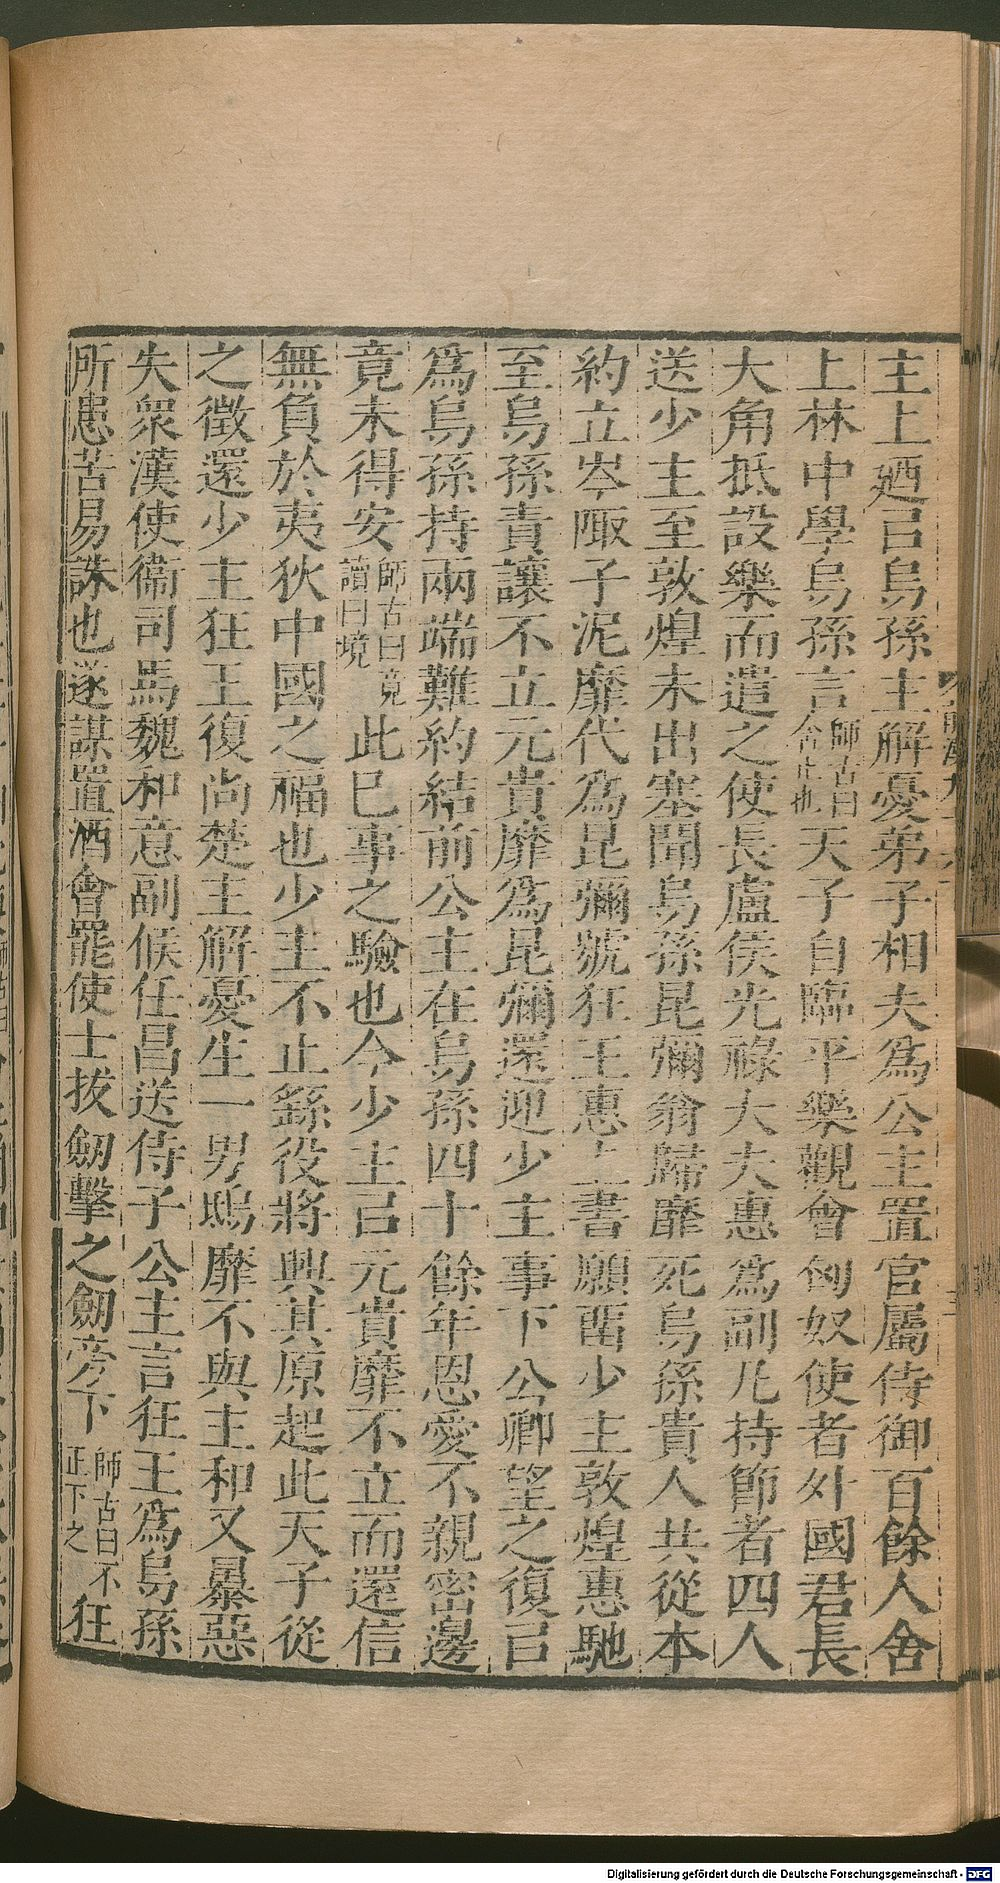 主上廼㠯烏孫主解憂弟子相夫爲公主置官屬侍御百餘人舍
上林中學烏孫言師古曰舍止也天子自臨平樂觀會匈奴使者外國君長
大角抵設樂而遣之使長盧侯光祿大夫惠爲副凡持節者四人
送少主至敦煌未出塞聞烏孫昆彌翁歸靡死烏孫貴人共從本
約立岑陬子泥靡代爲昆彌號狂王惠上書願畱少主敦煌惠馳
至烏孫責讓不立元貴靡爲昆彌還迎少主事下公卿望之復㠯
爲烏孫持兩端難約結前公主在烏孫四十餘年恩愛不親密邊
竟未得安師古曰竟讀曰境此已事之驗也今少主㠯元貴靡不立而還信
無負於夷狄中國之福也少主不止繇役將興其原起此天子從
之徵還少主狂王復尚楚主解憂生一男鴟靡不與主和又暴惡
失衆漢使衞司馬魏和意副候任昌送侍子公主言狂王爲烏孫
所患苦易誅也遂謀置酒會罷使士拔劒擊之劒旁下師古曰不正下之狂
Digitalisierung gefördert durch die Deutsche Forschungsgemeinschaft - DFG